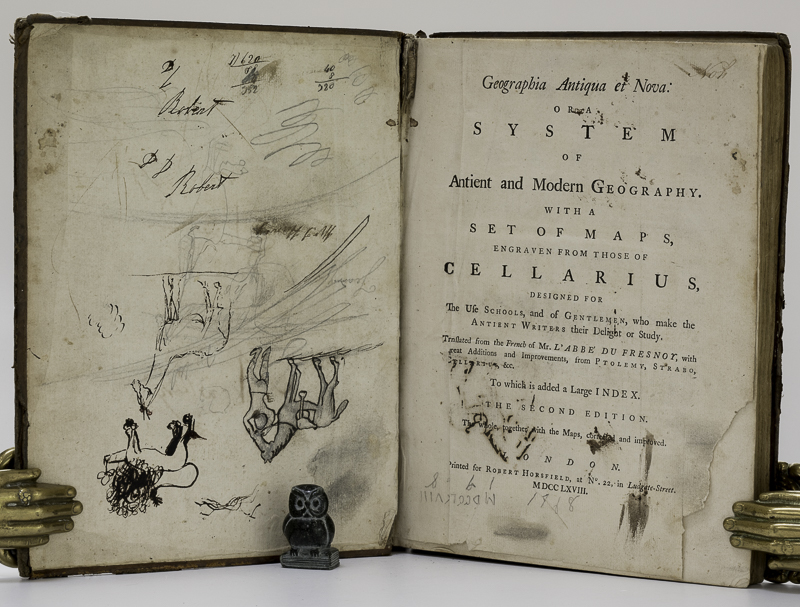 Robert
Robert
Geographia Antiqua et Nova:
OR A
SYSTEM
OF
Antient and Modern GEOGRAPHY.
WITH A
SET OF MAPS,
ENGRAVEN FROM THOSE OF
CELLARIUS,
DESIGNED FOR
The Use SCHOOLS, and of GENTLEMEN, who make the
ANTIENT WRITERS their Delight or Study.
Translated from the French of Mr. L'ABBE DU FRESNOY, with
great Additions and Improvements, from PTOLEMY, STRABO,
CELLARIUS, &c.
To which is added a Large INDEX.
THE SECOND EDITION.
The whole, together with the Maps, corrected and improved.
LONDON.
Printed for ROBERT HORSFIELD, at Nº. 22, in Ludgate-Street.
MDCCLXVIII.